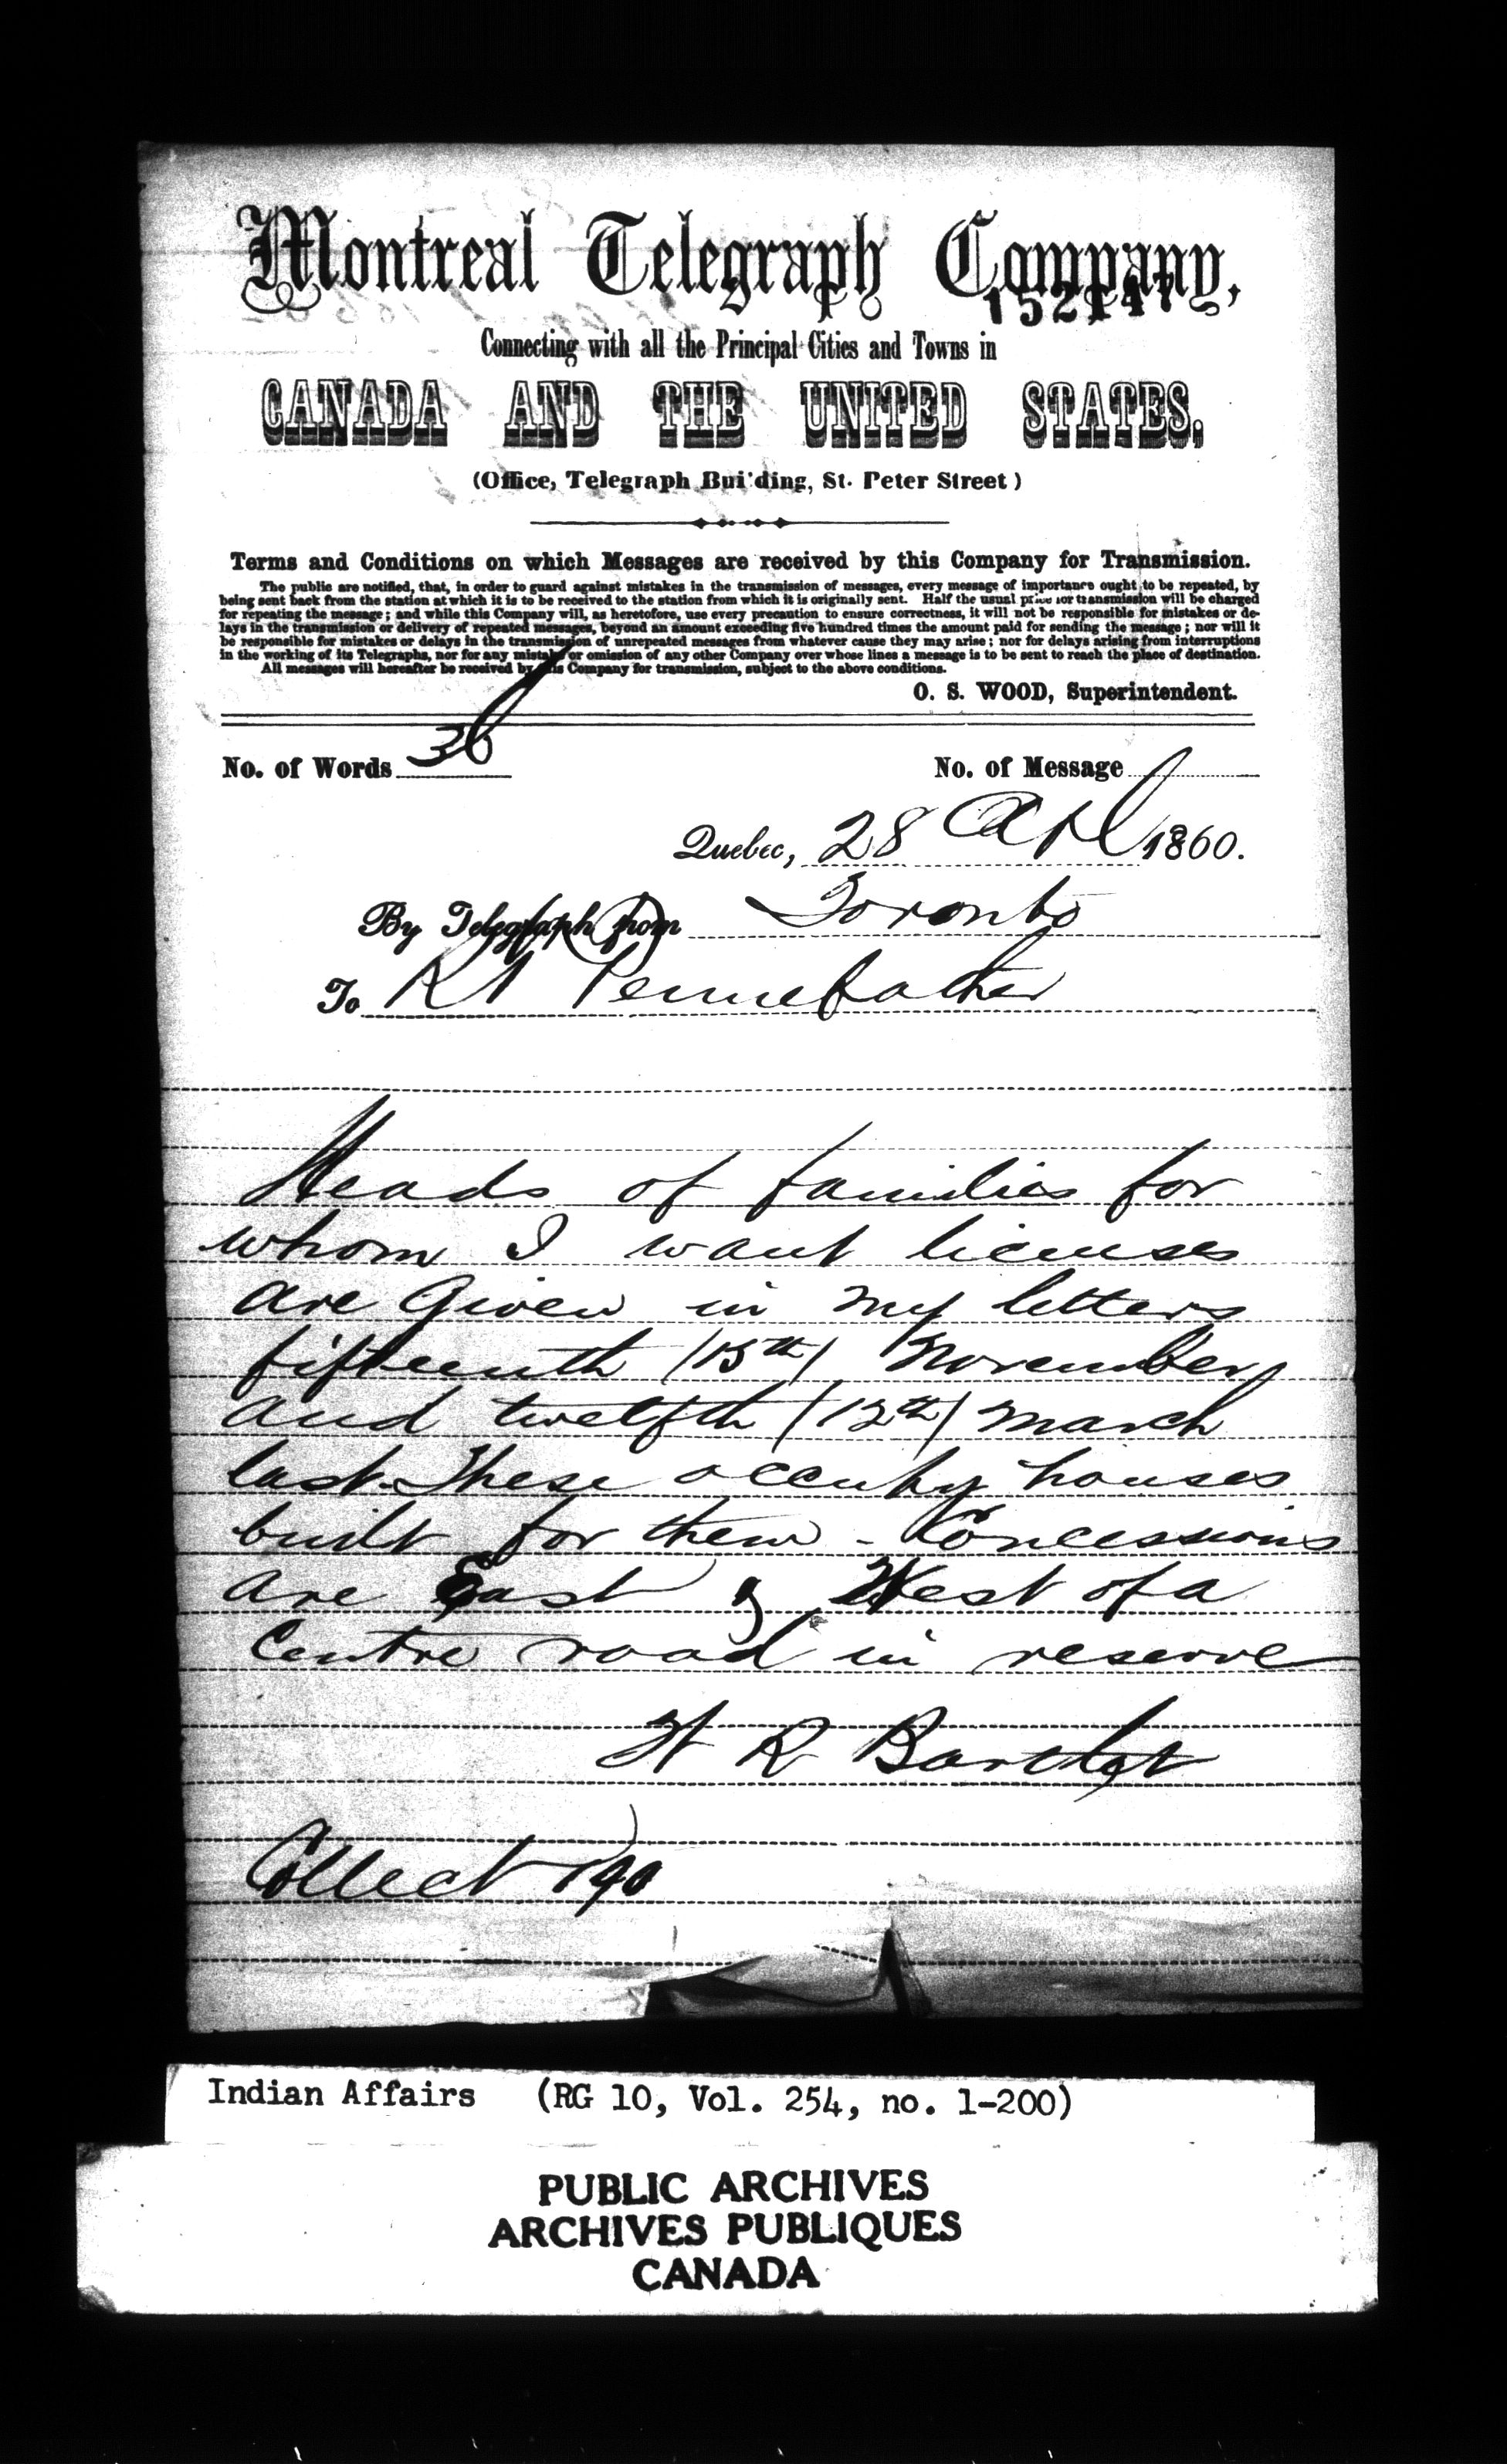 Montreal Telegraph Company,
152147
Connecting with all the Principal Cities and Towns in
CANADA AND THE UNITED STATES.
(Office, Telegraph Bui'ding, St. Peter Street)
Terms and Conditions on which Messages are received by this Company for Transmission.
The public are notified, that, in order to guard against mistakes in the transmission of messages, every message of importance ought to be repeated, by
being sent back from the station at which it is to be received to the station from which it is originally sent. Half the usual price for transmission will be charged
for repeating the message; and while this Company will, as heretofore, use every precaution to ensure correctness, it will not be responsible for mistakes or de-
lays in the transmission or delivery of repeated messages, beyond an amount exceeding five hundred times the amount paid for sending the message; nor will it
be responsible for mistakes or delays in the transmission of unrepeated messages from whatever cause they may arise; nor for delays arising from interruptions
in the working of its Telegraphs, nor for any mistake or omission of any other Company over whose lines a message is to be sent to reach the place of destination.
All messages will hereafter be received by this Company for transmission, subject to the above conditions.
O. S. WOOD, Superintendent.
No. of Words 36 No. of Message
Quebec, 28 Apl 1860.
By Telegraph from Toronto
To R T Pennefather
Heads of families for
whom I want licenses
are given in my letters
fifteenth (15th) November
and twelfth (12th) March
last. These occupy houses
built for them - Concessions
are East & West of a
Centre road in reserve
W R Bartlet
Collect 190
Indian Affairs (RG 10, Vol. 254, no. 1-200)
PUBLIC ARCHIVES
ARCHIVES PUBLIQUES
CANADA